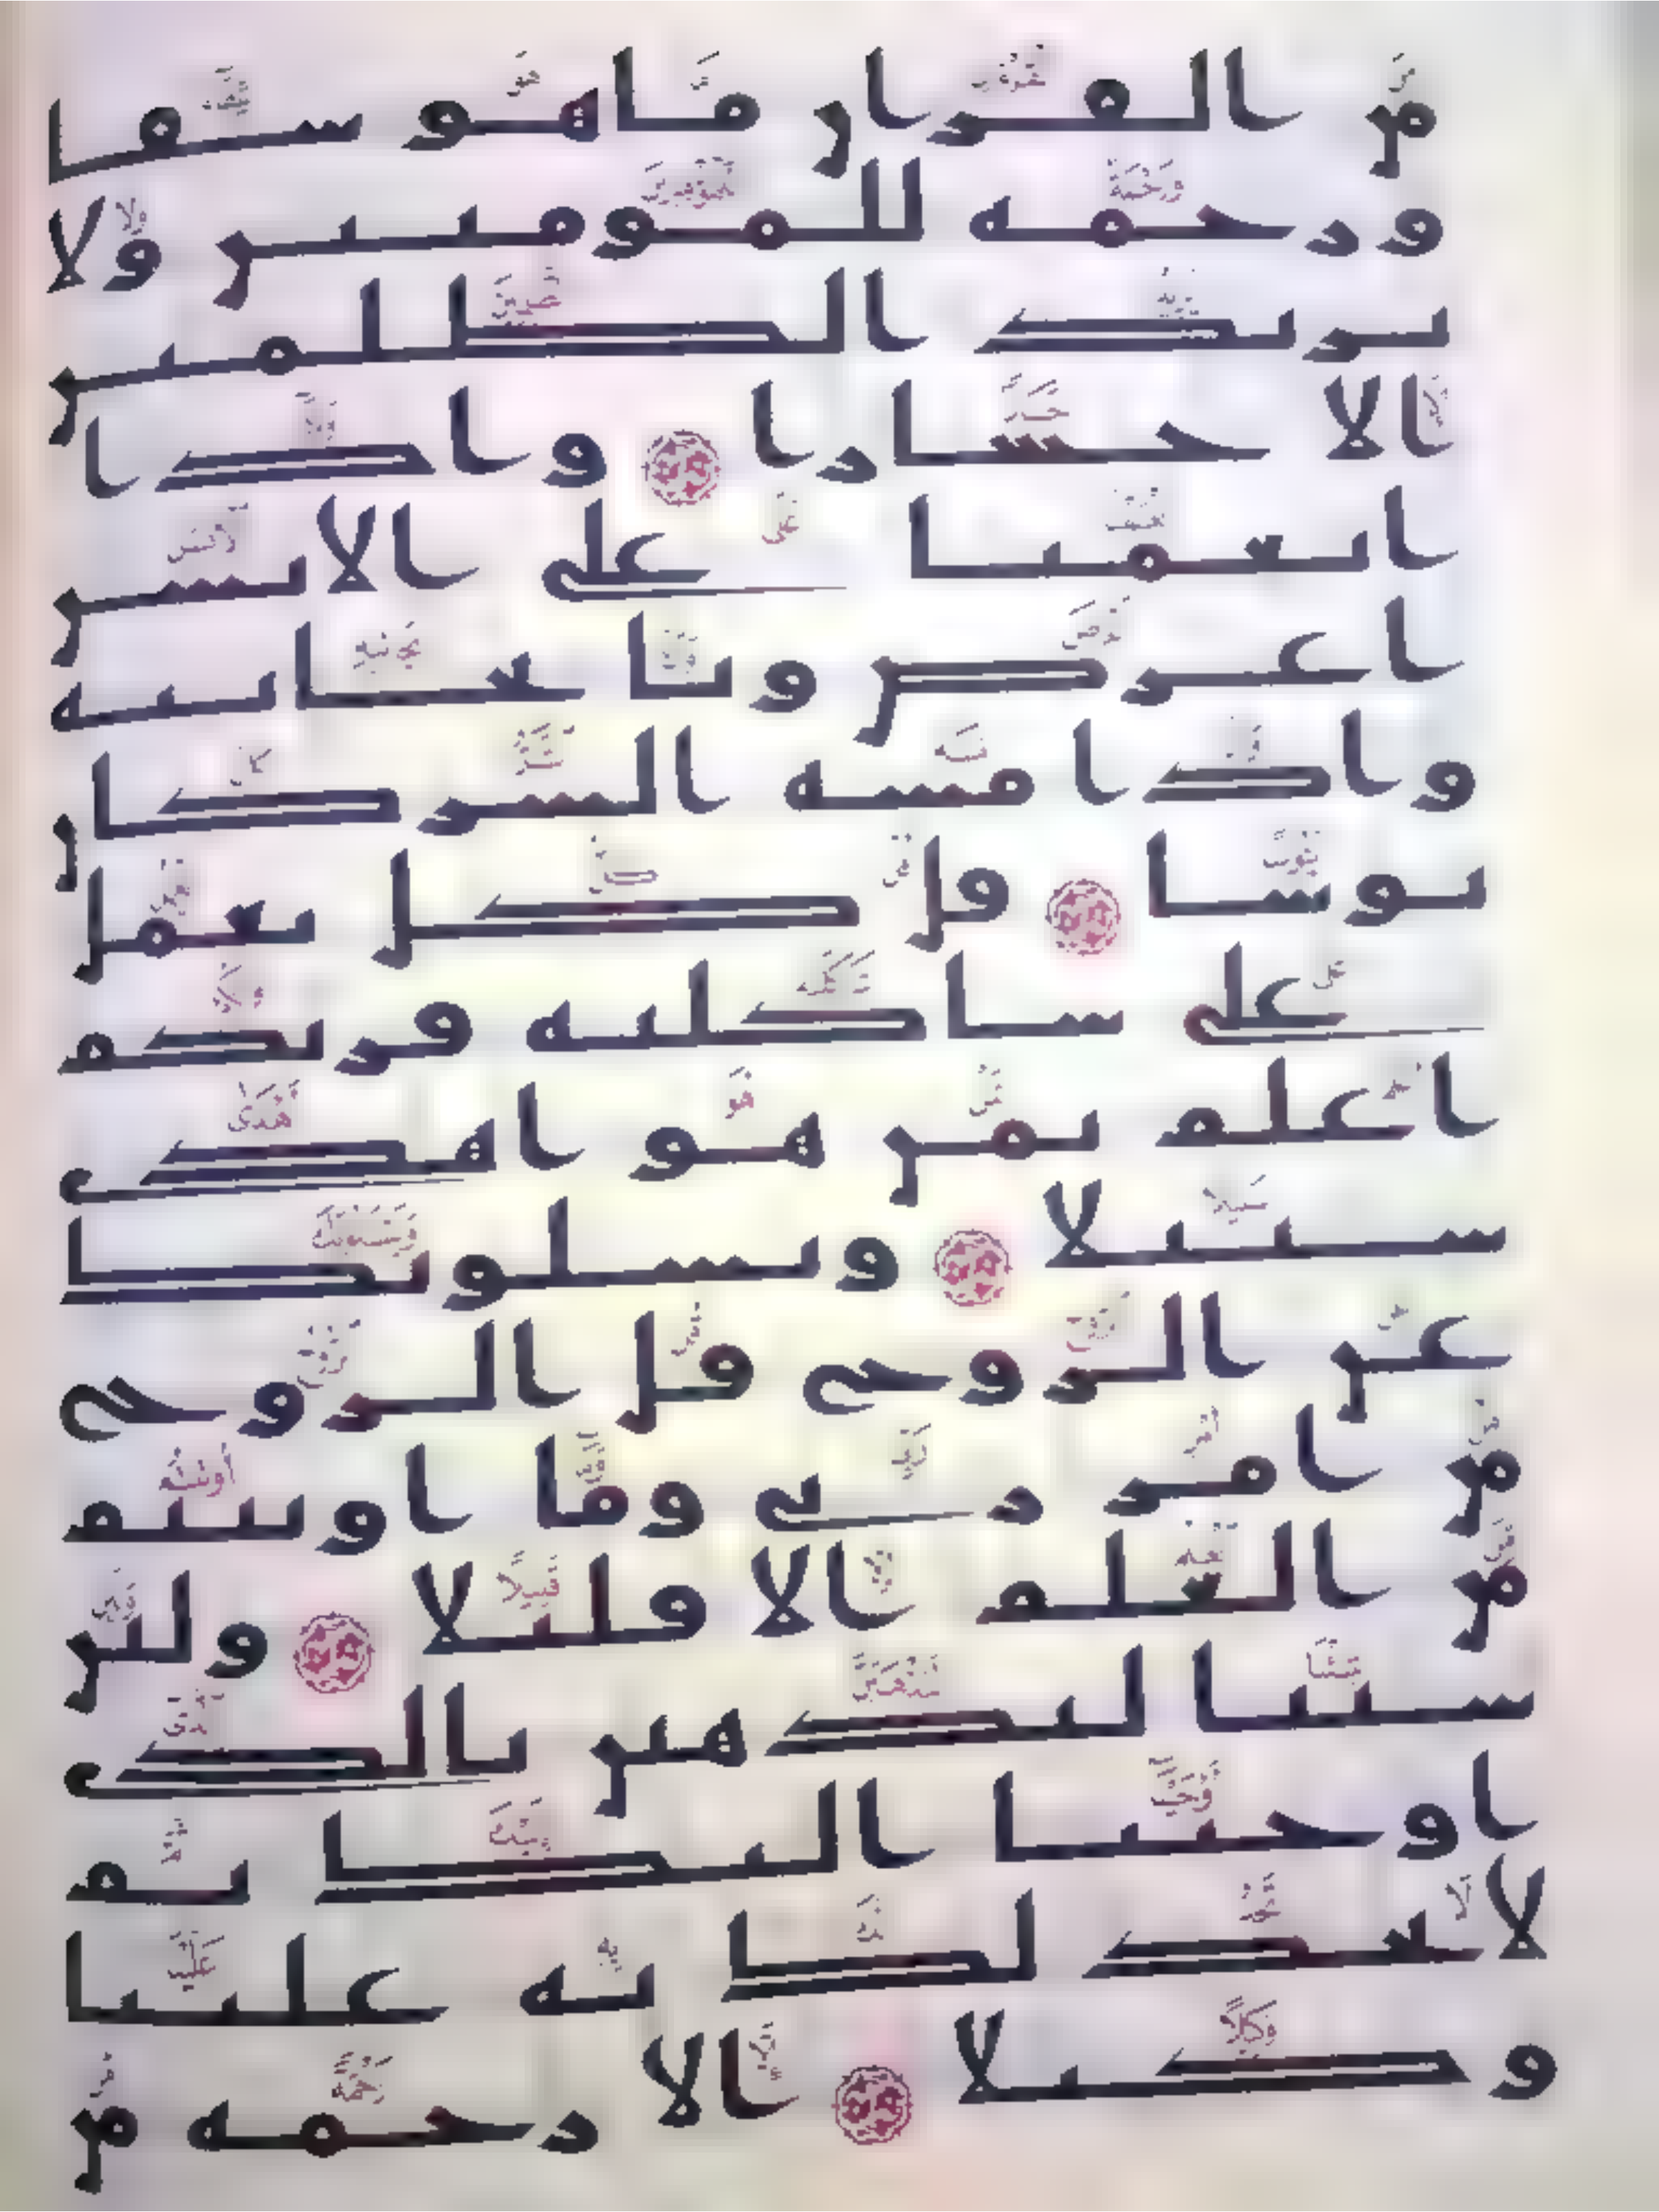 من القران ما هو شفا
ورحمه للمومنين ولا
يزيد الظلمين
الا خسارا واذا
انعمنا على الانسن
اعرض ونا بجانبه
واذا مسه الشر كان
يوسا قل كل يعمل
على شاكلته فربكم
اعلم بمن هو اهدى
سبيلا ويسلونك
عن الروح قل الروح
من امر ربي وما اوتيتم
من العلم الا قليلا ولين
شينا لنذهبن بالذي
اوحينا اليك ثم
لا تجد لك به علينا
وكيلا الا رحمه من